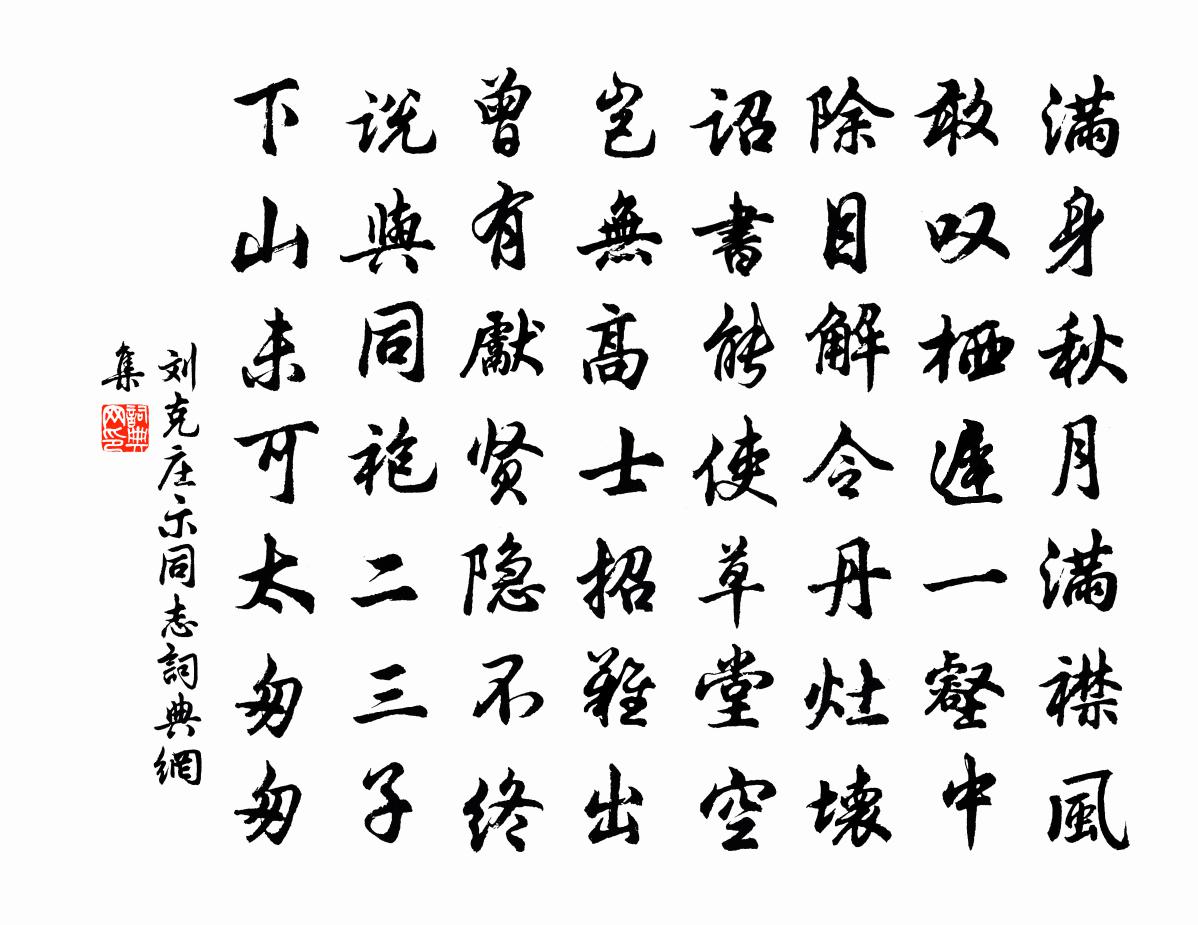 满身秋月满襟風
敢叹栖遲一壑中
除目解令丹灶壞
詔書能使草堂空
岂無高士招難出
曾有獻贤隐不终
说與同袍二三子
下山未可太匆匆
刘克庄示同志詞典網
集
詞典
网印